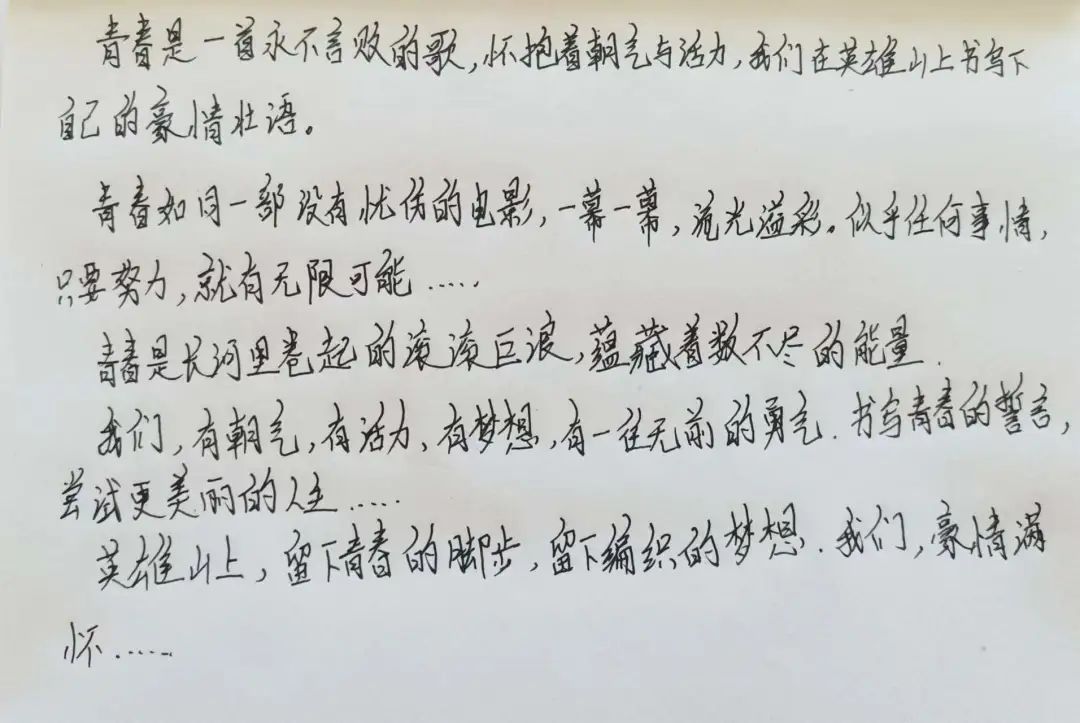 青春是一首永不言败的歌,怀抱着朝气与活力,我们在英雄山上书写下
自己的豪情壮语。
青春如同一部没有忧伤的电影,一幕一幕,流光溢彩。似乎任何事情,
只要努力,就有无限可能……
青春是长河里卷起的滚滚巨浪,蕴藏着数不尽的能量.
我们,有朝气,有活力,有梦想,有一往无前的勇气.书写青春的誓言,
尝试更美丽的人生……
英雄山上,留下青春的脚步,留下编织的梦想.我们,豪情满
怀……